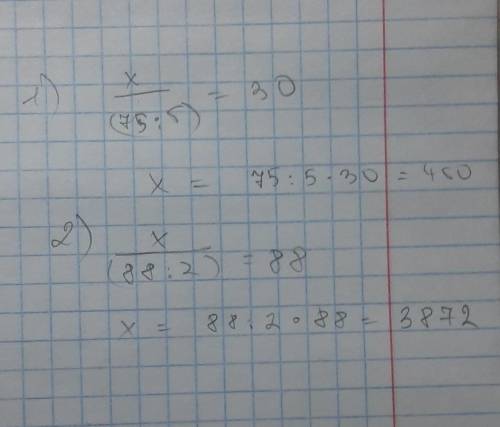 1) x / (75 : 5) = 30
x = 75 : 5 · 30 = 450
2) x / (88 : 2) = 88
x = 88 : 2 · 88 = 3872